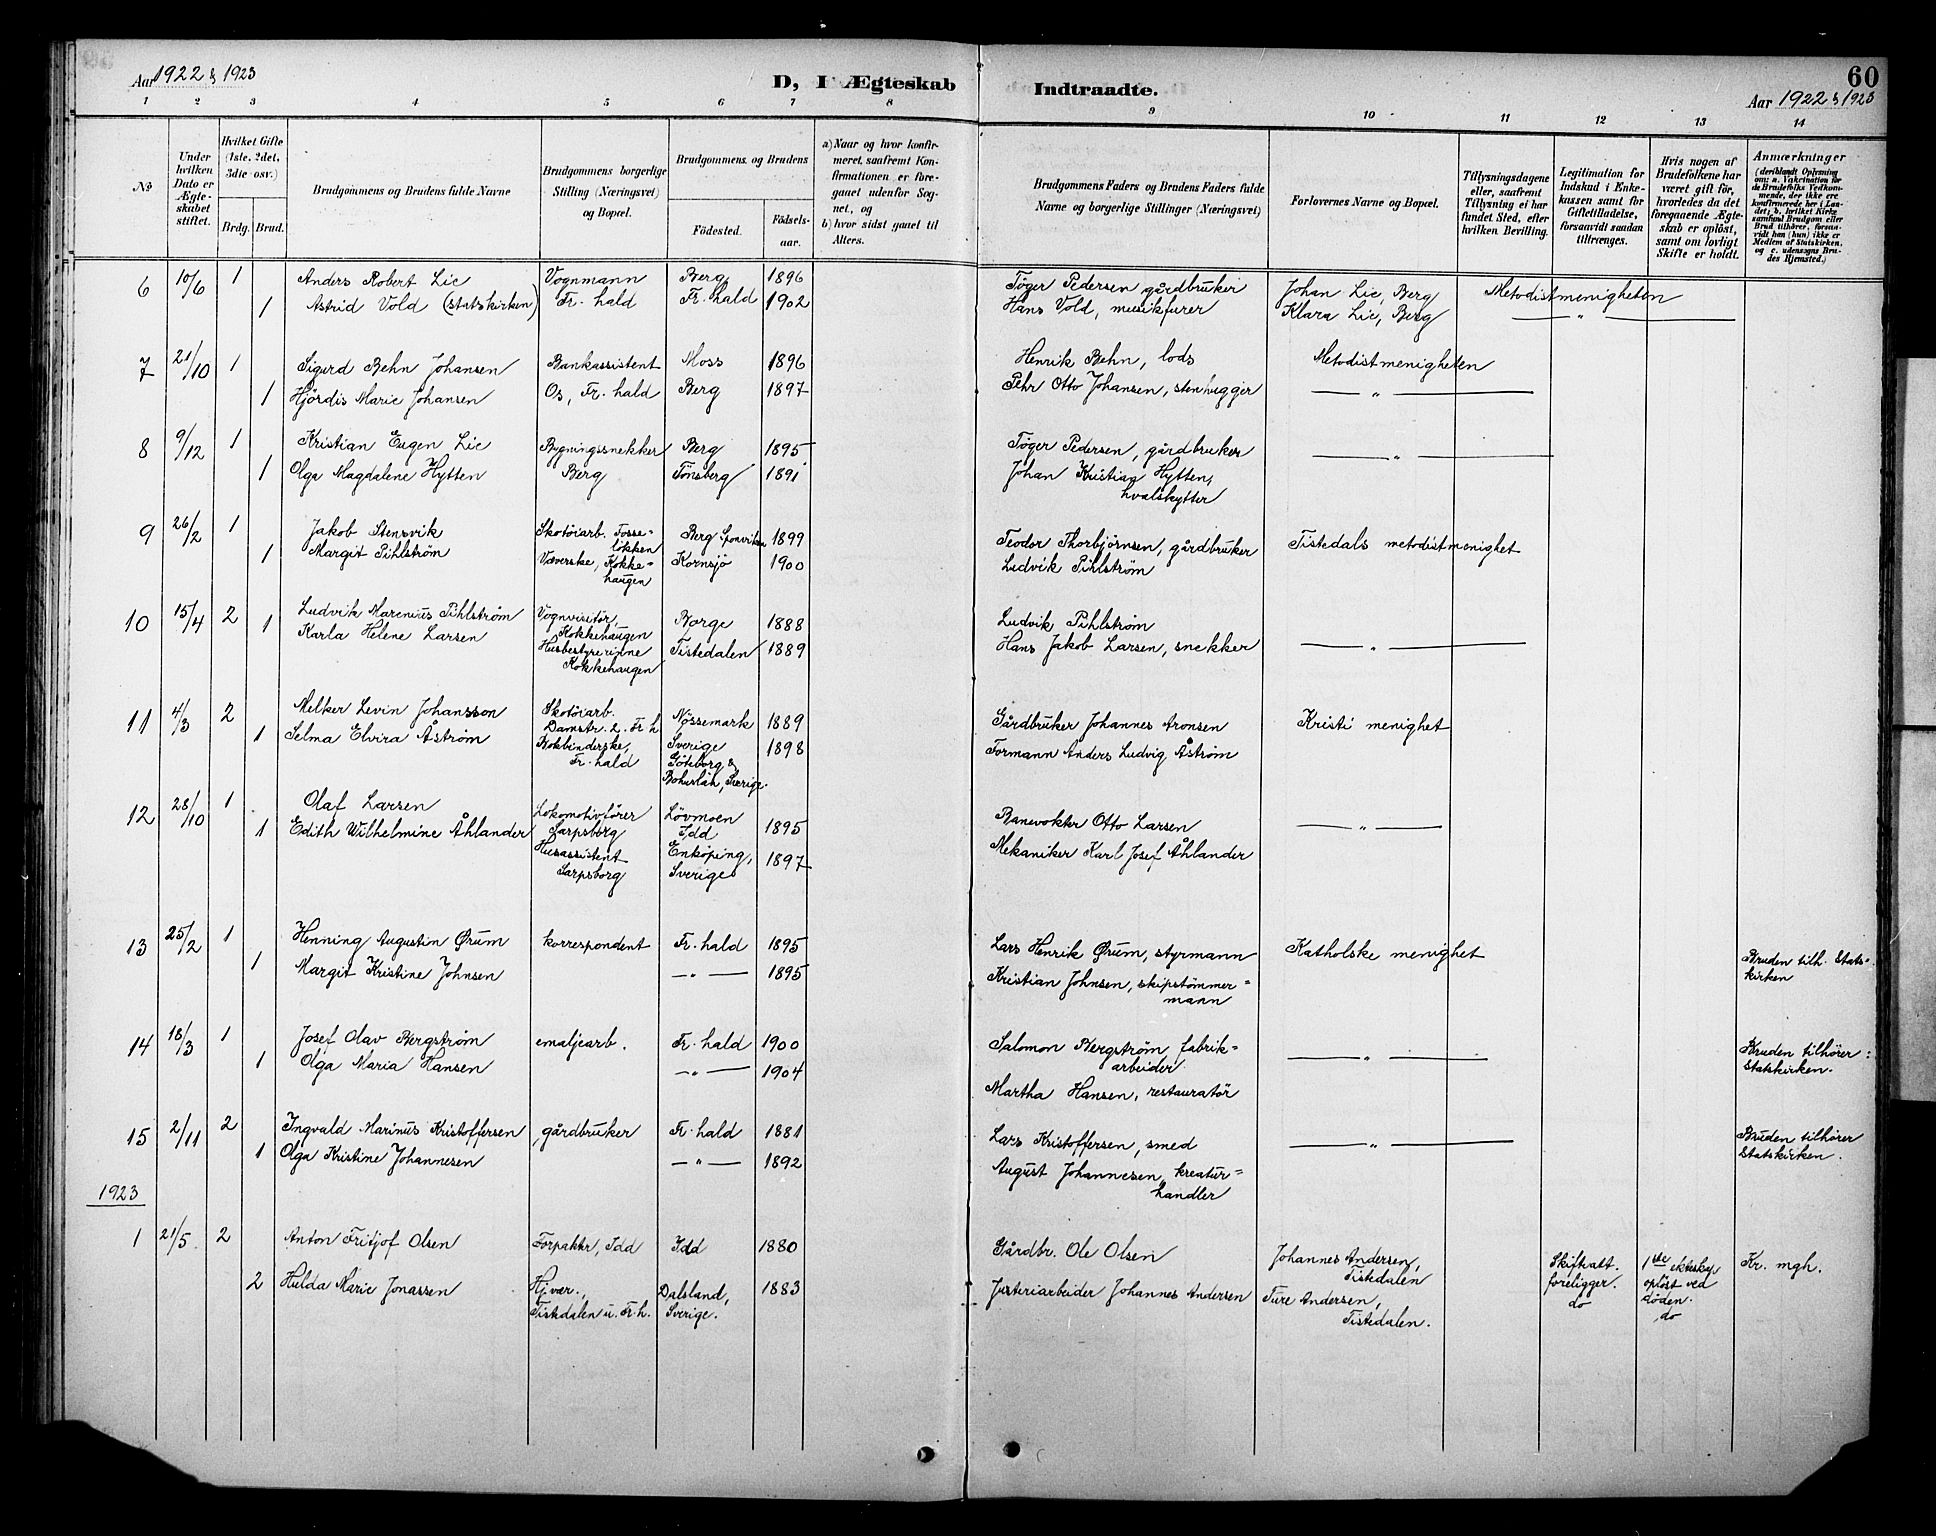 Aar 1922 & 1923
D, I Ægteskab
Indtraadte.
60
Aar 1922 & 1923
1 2 3 4 5 6 7 8 9 10 11 12 13 14
No
Under hvilken Dato er Ægteskabet stiftet.
Hvilket Gifte (1ste, 2det, 3die osv.)
Brdg. Brud.
Brudgommens og Brudens fulde Navne
Brudgommens borgerlige Stilling (Næringsvei) og Bopæl.
Brudgommens og Brudens
Fødested.
Fødselsaar.
a) Naar og hvor konfirmeret, saafremt Konfirmationen er foregaaet udenfor Sognet, og
b) hvor sidst gaaet til Alters.
Brudgommens Faders og Brudens Faders fulde Navne og borgerlige Stillinger (Næringsvei)
Forlovernes Navne og Bopæl.
Tillysningsdagene eller, saafremt Tillysning ei har fundet Sted, efter hvilken Bevilling.
Legitimation for Indskud i Enkekassen samt for Giftetilladelse, forsaavidt saadan tiltrænges.
Hvis nogen af Brudefolkene har været gift før, hvorledes da det foregaaende Ægteskab er opløst, samt om lovligt Skifte er holdt.
Anmærkninger (deriblandt Oplysning om: a. Vakcination for de Brudefolks Vedkommende, der ikke ere konfirmerede her i Landet; b. hvilket Kirkesamfund Brudgom eller Brud tilhører, forsaavidt han (hun) ikke er Medlem af Statskirken, og c. udensogns Brudes Hjemsted.)
6 10/6 1 Anders Robert Lie Vognmann Berg 1896 Tøger Pedersen gårdbruker Johan Lie, Berg Metodistmenigheten
1 Astrid Vold (statskirken) Fr. hald Fr. hald 1902 Hans Vold, musikfurer Klara Lie, Berg — " —
7 21/10 1 Sigurd Behn Johansen Bankassistent Moss 1896 Henrik Behn, lods Metodistmenigheten
1 Hjördis Marie Johansen Os, Fr. hald Berg 1897 Pehr Otto Johansen, stenhugger — " —
8 9/12 1 Kristian Eugen Lie Bygningssnekker Berg 1895 Tøger Pedersen, gårdbruker — " —
1 Olga Magdalene Hytten Berg Tönsberg 1891 Johan Kristian Hytten,
hvalskytter
9 26/2 1 Jakob Stensvik Skotöiarb. Fosse= Berg Sponviken 1899 Teodor Thorbjörnsen, gårdbruker Tistedals metodistmenighet
løkken
1 Margit Pihlström Væverske, Kokke= Kornsjö 1900 Ludvik Pihlström
haugen
10 15/4 2 Ludvik Marenius Pihlström Vognvisitör, Borge 1888 Ludvik Pihlström
Kokkehaugen
1 Karla Helene Larsen Husbestyrerinne Tistedalen 1889 Hans Jakob Larsen, snekker — " —
Kokkehaugen
11 4/3 2 Melker Levin Johansson Skotöiarb. Nössemark 1889 Gårdbruker Johannes Aronsen Kristi menighet
Damstr. 2. Fr h Sverige
1 Selma Elvira Åström Bokbinderske, Göteborg & 1898 Formann Anders Ludvig Åström
Fr. hald Bohuslän, Sverige.
12 28/10 1 Olaf Larsen Lokomotivfører Lövmoen 1895 Banevokter Otto Larsen — " —
Sarpsborg Idd
1 Edith Wilhelmine Åhlander Husassistent Enköping, 1897 Mekaniker Karl Josef Åhlander
Sarpsborg Sverige
13 25/2 1 Henning Augustin Ørum korrespondent Fr. hald 1895 Lars Henrik Ørum, styrmann Katholske menighet Bruden tilh. Stats=
1 Margit Kristine Johnsen — " — 1895 Kristian Johnsen, skipstömmer= kirken
mann
14 18/3 1 Josef Olav Bergström emaljearb. Fr. hald 1900 Salomon Bergström fabrik= — " — Bruden tilhører
arbeider
1 Olga Maria Hansen — " — 1904 Martha Hansen, restauratør Statskirken.
15 2/11 2 Ingvald Marinus Kristoffersen, gårdbruker Fr. hald 1881 Lars Kristoffersen, smed — " — Bruden tilhører
1 Olga Kristine Johannesen — " — 1892 August Johannesen, kreatur= Statskirken.
handler
1923
1 21/5 2 Anton Fritjof Olsen Forpakter, Idd Idd 1880 Gårdbr. Ole Olsen Johannes Andersen, Skifteatt. 1ste ekteskap Kr. mgh.
Tistedalen foreligger. oplöst ved
2 Hulda Marie Jonassen Hj.vær., Dalsland, 1883 Andersen Ture Andersen, do döden.
Tistedalen u. Fr. h. Sverige. Tistedalen. do